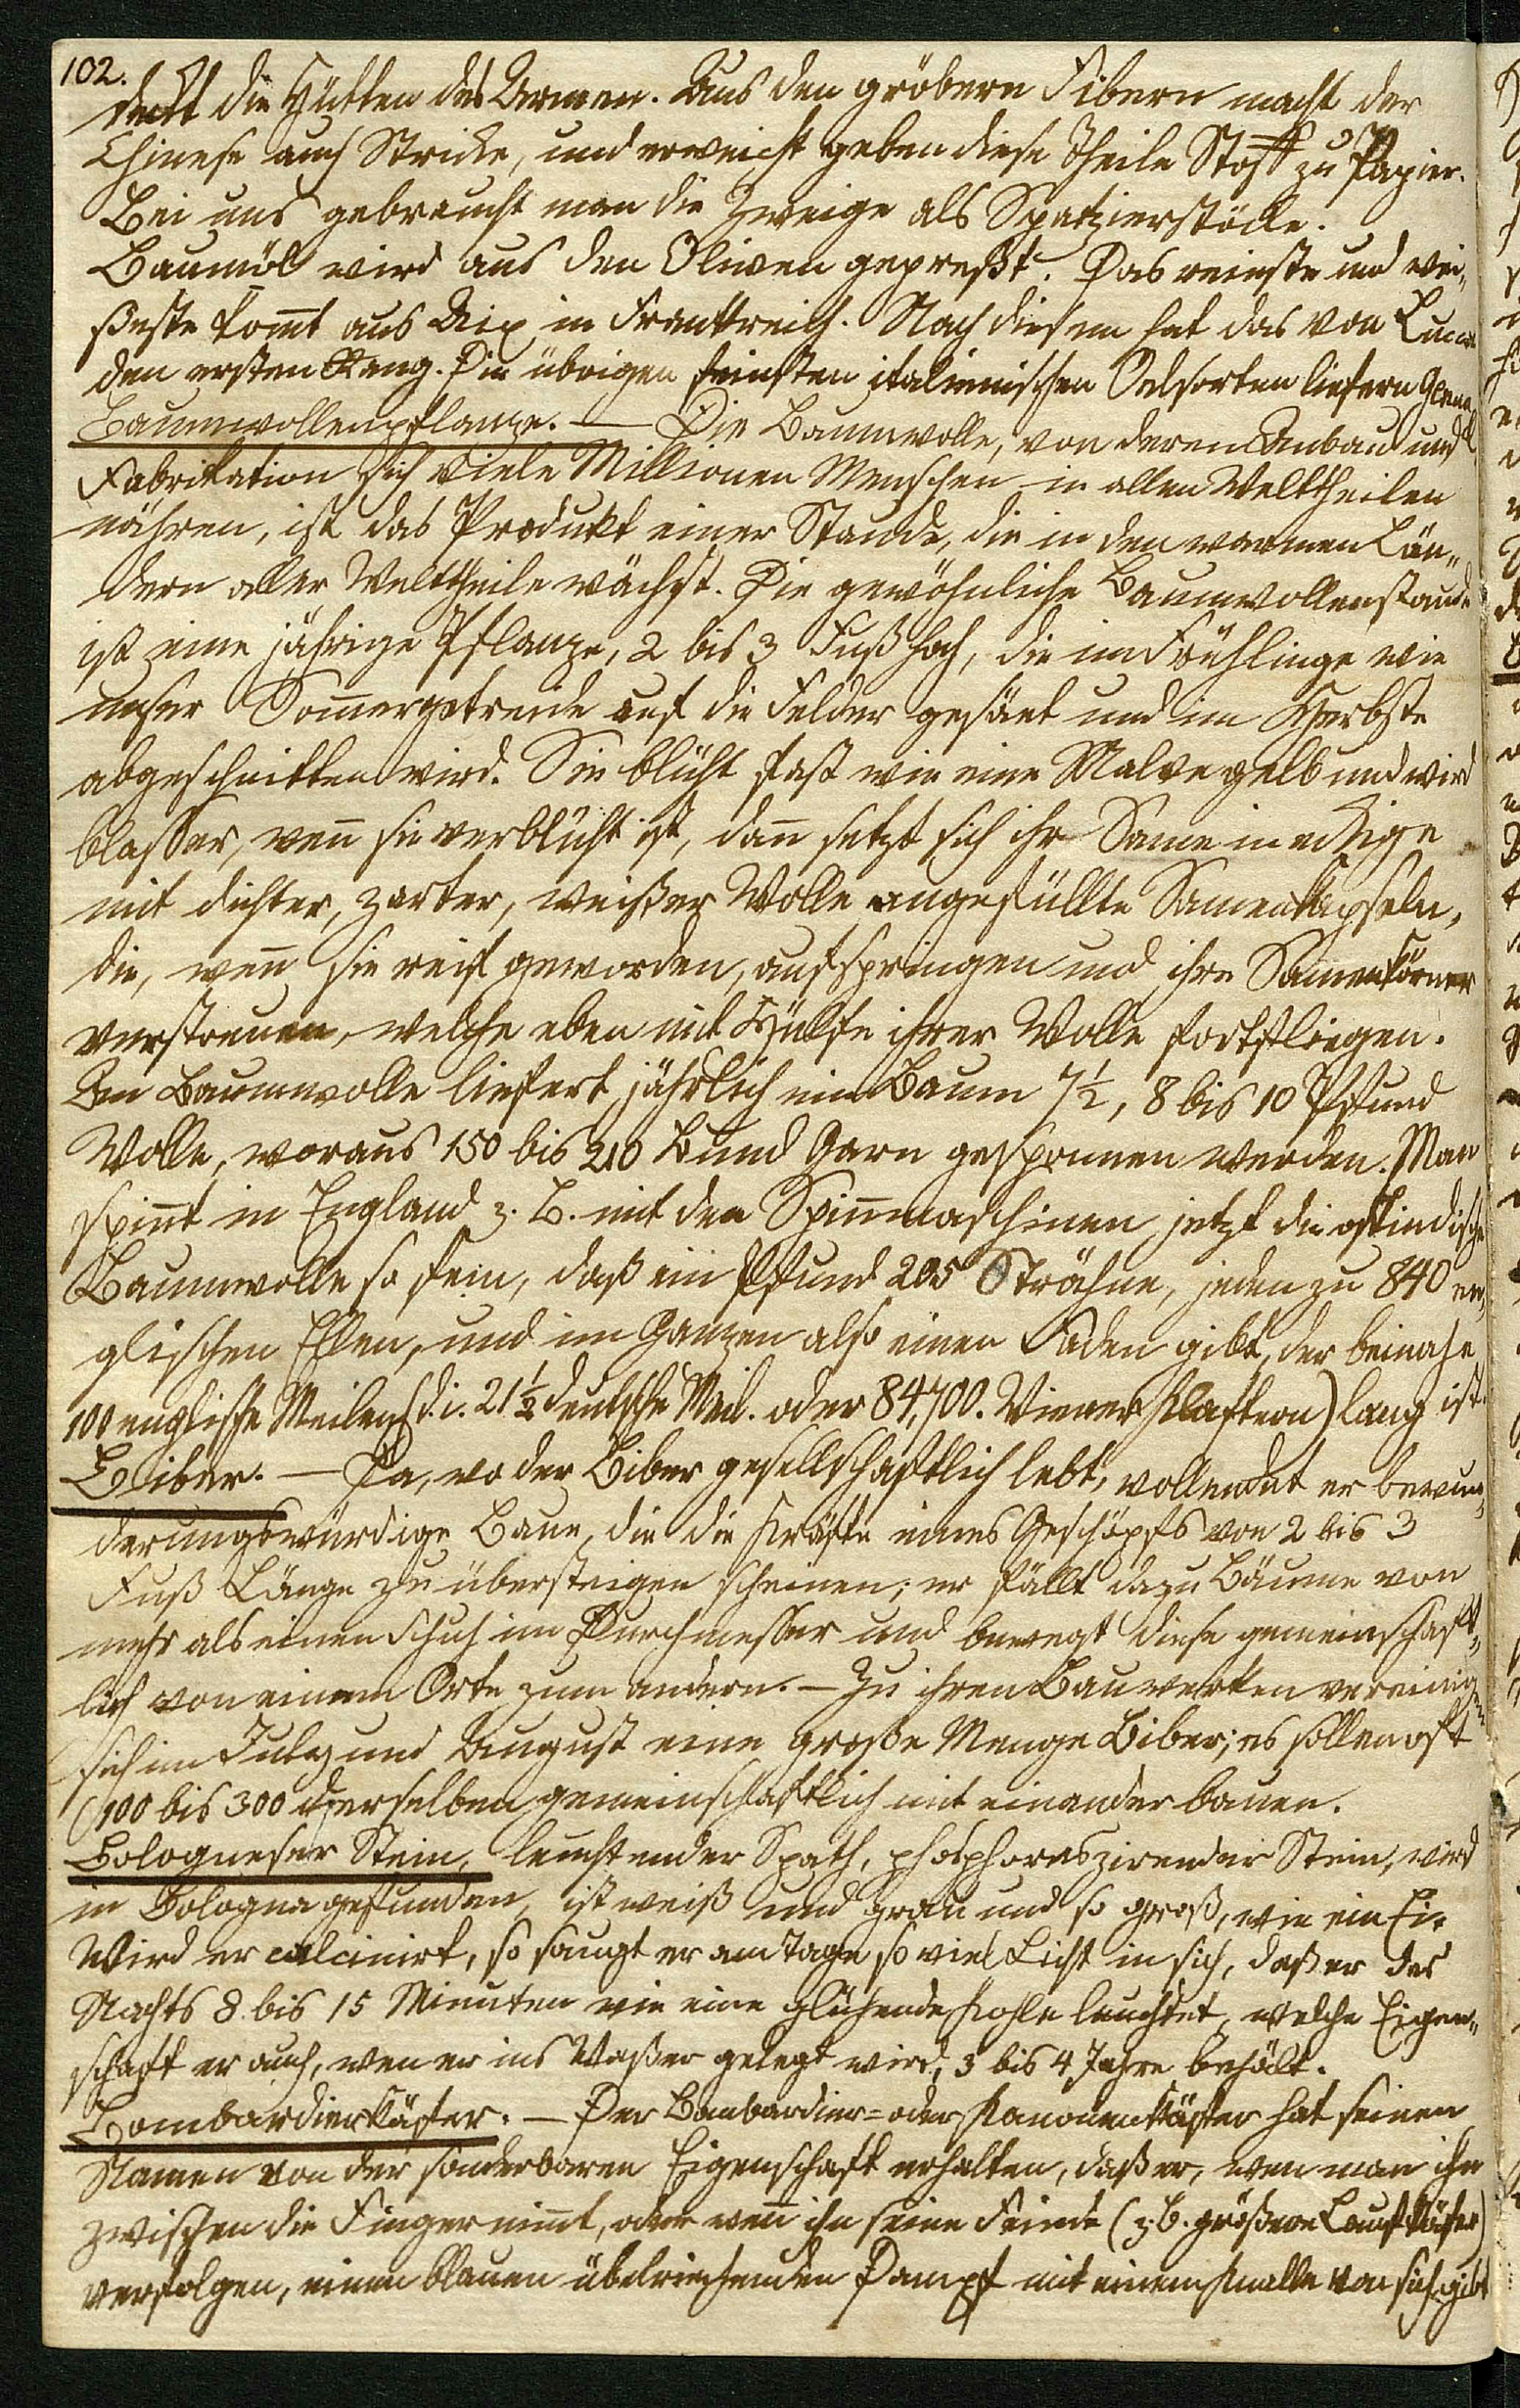 102.
deckt die Hütten des Armen. Aus den gröbern Fibern macht der
Chinese auch Stricke, und erweicht geben diese Theile Stoff zu Papier.
Bei uns gebraucht man die Zweige als Spatzierstöcke.
Baumöl wird aus den Oliven gepreßt. Das reinste und wei„
ßeste kom̅t aus Aix in Frankreich. Nach diesem hat das von Lucca
den ersten Rang. Die übrigen feinsten italienischen Oelsorten liefern Genua
Baumwollenpflanze. — Die Baumwolle, von deren Anbau und
Fabrikation sich viele Millionen Menschen in allen Welttheilen
nähren, ist das Produkt einer Staude, die in den warmen Län„
dern aller Welttheile wächst. Die gewöhnliche Baumwollenstaude
ist eine jährige Pflanze, 2 bis 3 Fuß hoch, die im Frühlinge wie
unser Som̅ergetreide auf die Felder gesäet und im Herbste
abgeschnitten wird. Sie blüht fast wie eine Malve gelb und wird
blasser, wen̅ sie verblüht ist, dan̅ setzt sich ihr Same in eckige
mit dichter, zarter, weißer Wolle angefüllte Samenkapseln,
die, wen̅ sie reif geworden, aufspringen und ihre Samenkörner
verstreuen, welche eben mit Hülfe ihrer Wolle fortfliegen.
An Baumwolle liefert jährlich ein Baum 7½, 8 bis 10 Pfund
Wolle, woraus 150 bis 210 Bund Garn gesponnen werden. Man
spin̅t in England z. B. mit den Spin̅maschinen jetzt die ostindische
Baumwolle so fein, daß ein Pfund 205 Strähne, jeden zu 840 en„
glischen Ellen, und im Ganzen also einen Faden gibt, der beinahe
100 englische Meilen (d. i. 21½ deutsche Meil. oder 84,700. Wiener Klaftern) lang ist.
Biber. — Da, wo der Biber gesellschaftlich lebt, vollendet er bewun„
derungswürdige Baue, die die Kräfte eines Geschöpfs von 2 bis 3
Fuß Länge zu übersteigen scheinen; er fällt dazu Bäume von
mehr als einen Schuh im Durchmesser und bewegt diese gemeinschaft„
lich von einem Orte zum andern. — Zu ihren Bauwerken vereinigen
sich im July und August eine große Menge Biber; es sollen oft
100 bis 300 derselben gemeinschaftlich mit einander bauen.
Bologneser Stein, leuchtender Spath, phosphoreszirender Stein, wird
in Bologna gefunden, ist weiß und grau und so groß, wie ein Ei.
Wird er calcinirt, so saugt er am Tage so viel Licht in sich, daß er des
Nachts 8 bis 15 Minuten wie eine glühende Kohle leuchtet, welche Eigen„
schaft er auch, wen er ins Waßer gelegt wird, 3 bis 4 Jahre behält.
Bombardierkäfer. — Der Bombardier= oder Kanonenkäfer hat seinen
Namen von der sonderbaren Eigenschaft erhalten, daß er, wen man ihn
zwischen die Finger nim̅t, oder wen̅ ihn seine Feinde (z. B. größere Laufkäfer)
verfolgen, einen blauen übelriechenden Dampf mit einem Knalle von sich gibt